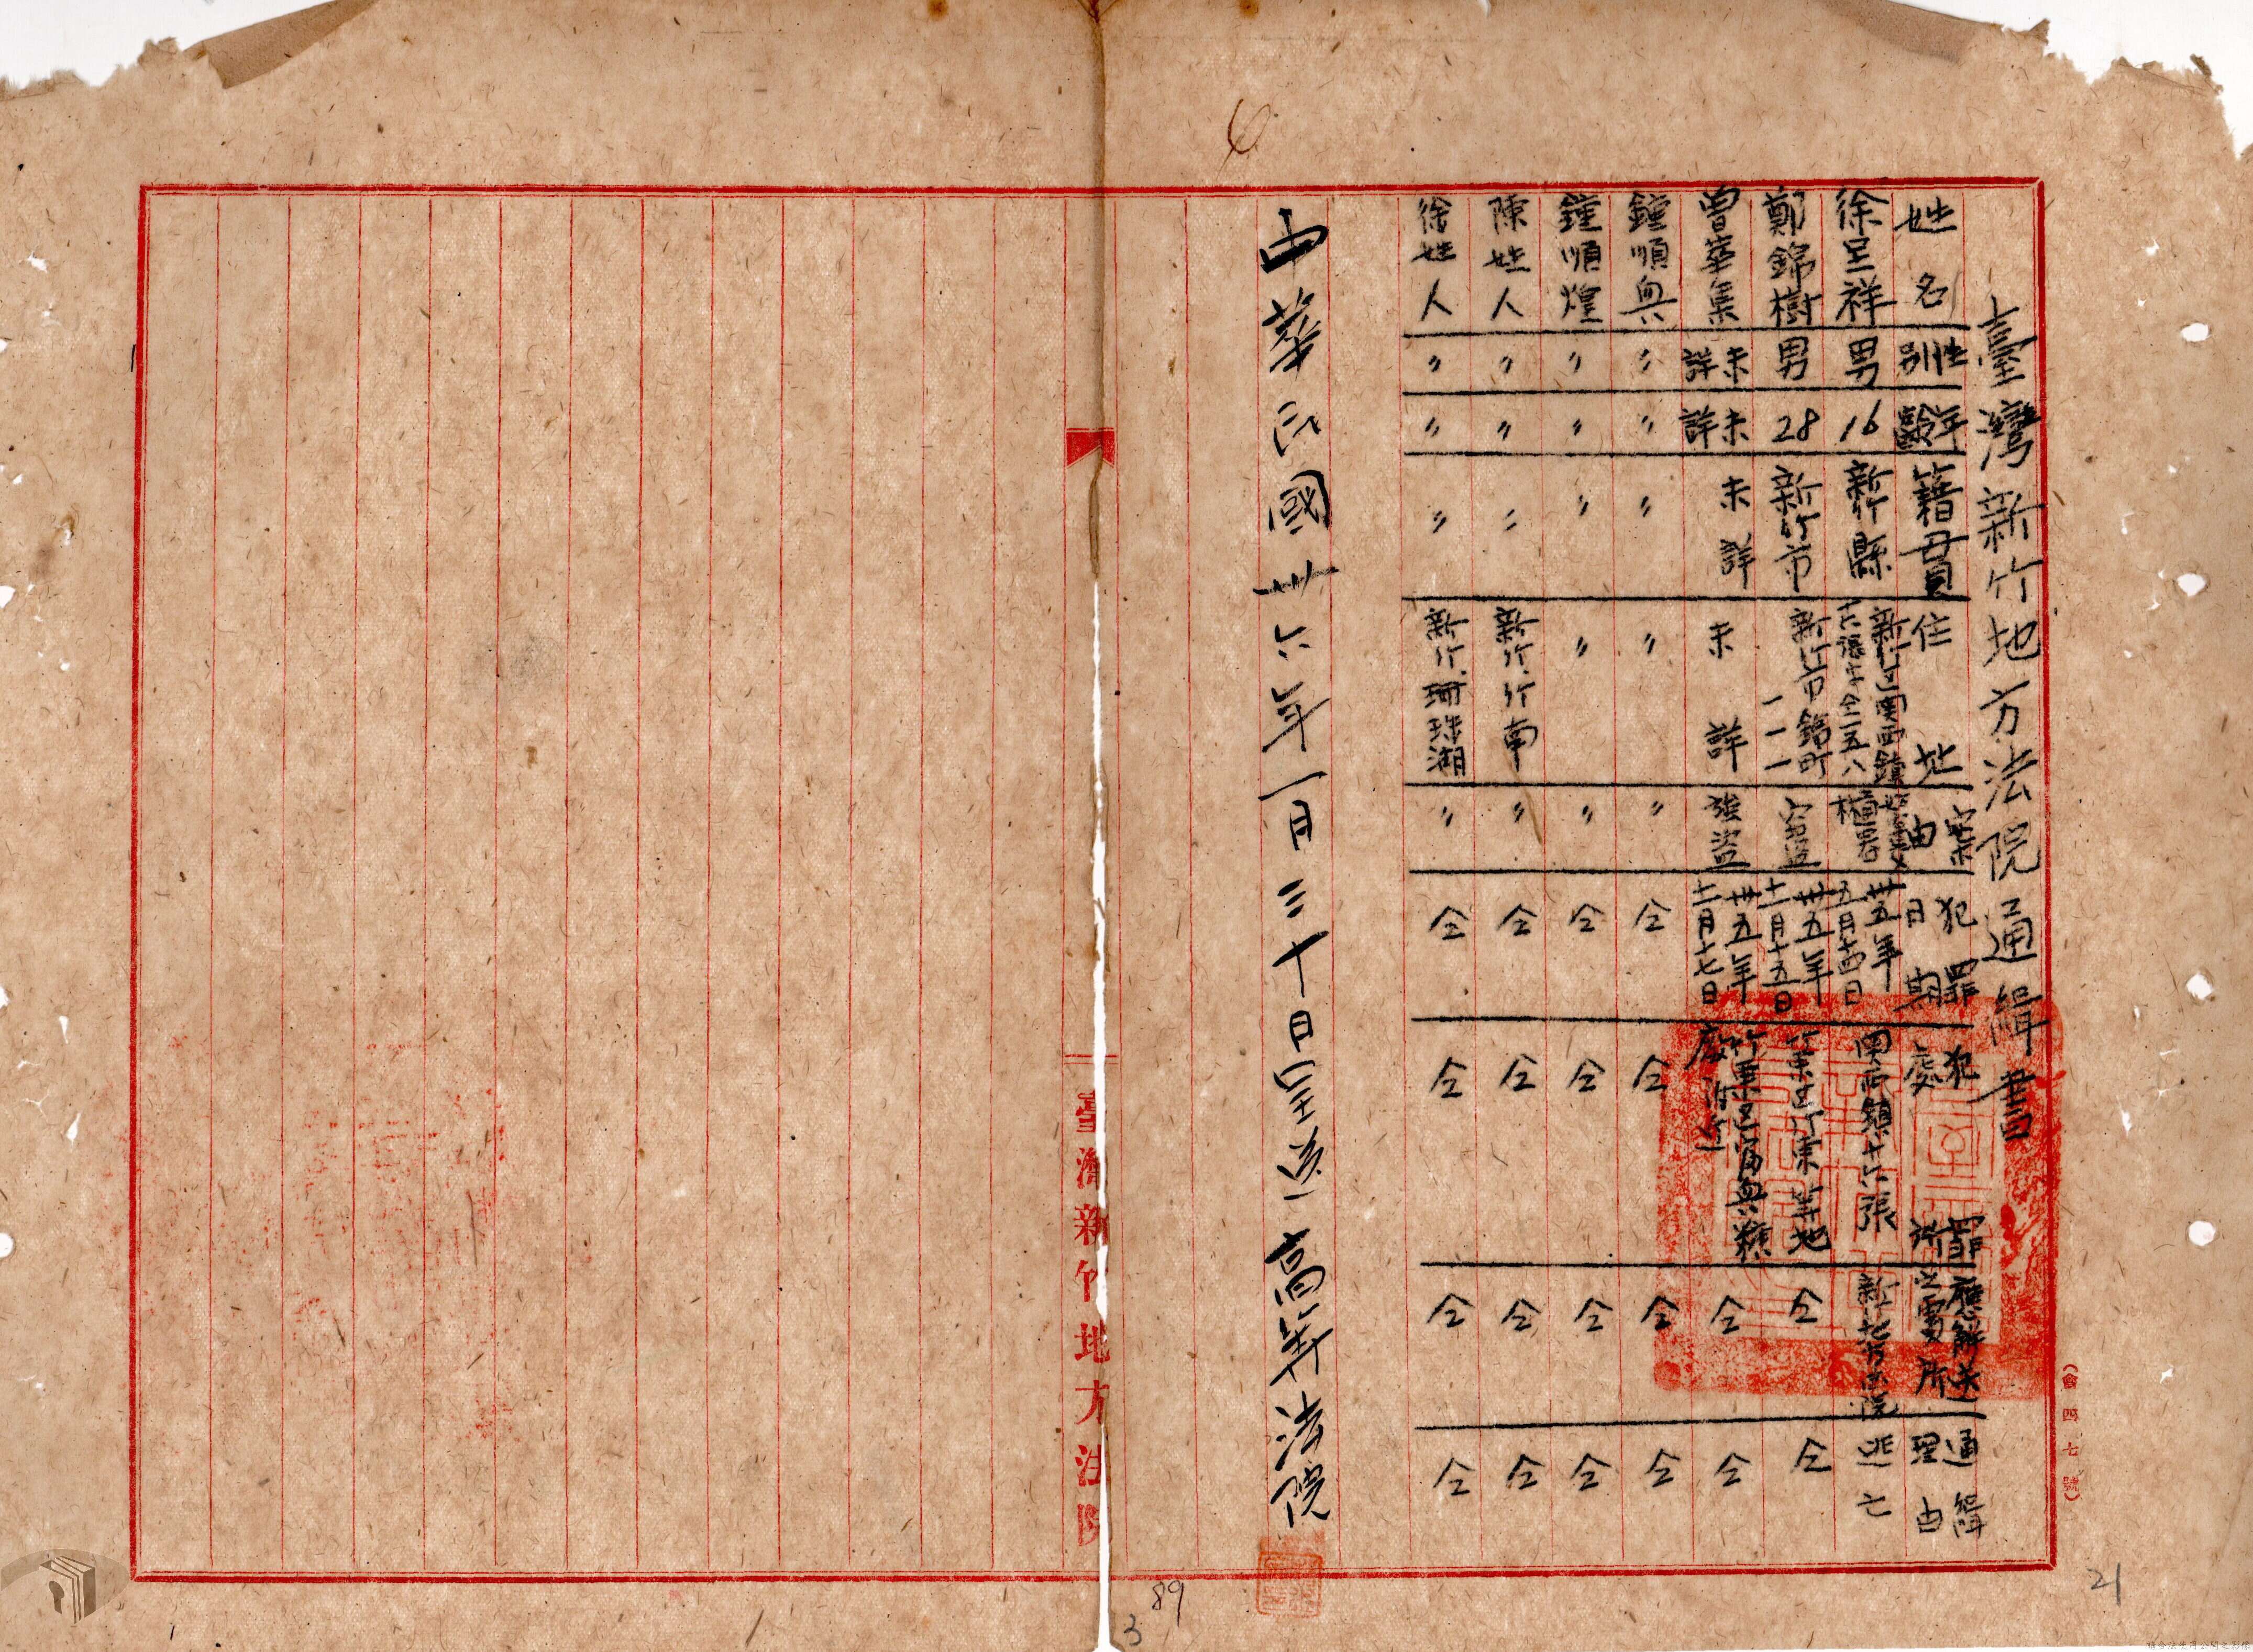 臺灣新竹地方法院通緝書
姓名 性別 年齡 籍貫 住址 案由 犯罪日期 犯罪處所 應解送之處所 通緝理由
徐呈祥 男 16 新竹縣 新竹 關西鎮 十六張 仝一五八 卅五年五月十四日 關西鎮十六張 新竹地方法院 逃亡
鄭錦樹 男 28 新竹市 新竹市錦町一一一 竊盜 卅五年十一月十五日 竹東區竹東等地 仝 仝
曾華集 未詳 未詳 未詳 未詳 強盜 卅五年十二月十七日 竹東區 仝 仝
鐘順興 〃 〃 〃 〃 〃 仝 仝 仝 仝
鐘順煌 〃 〃 〃 〃 〃 仝 仝 仝 仝
陳姓人 〃 〃 〃 新竹、竹南 〃 仝 仝 仝 仝
徐姓人 〃 〃 〃 新竹、珊珠湖 〃 仝 仝 仝 仝
中華民國卅六年一月三十日呈送高等法院
臺灣新竹地方法院
(會四七號)
89
3
21